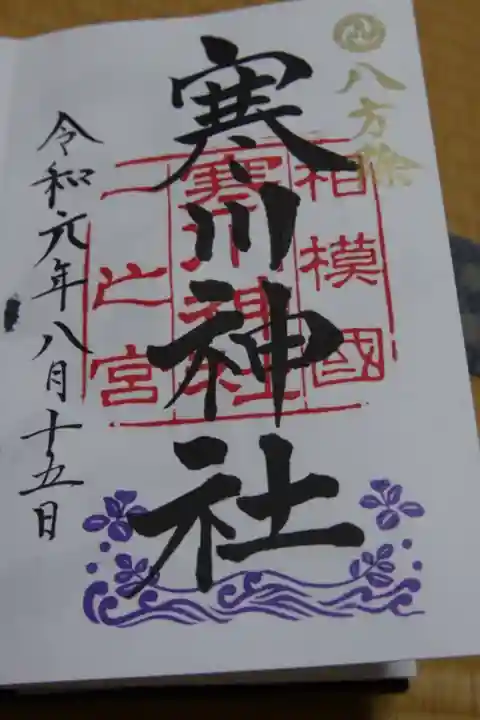 八方除
寒川神社
相模國
寒川神社
一之宮
令和元年八月十五日